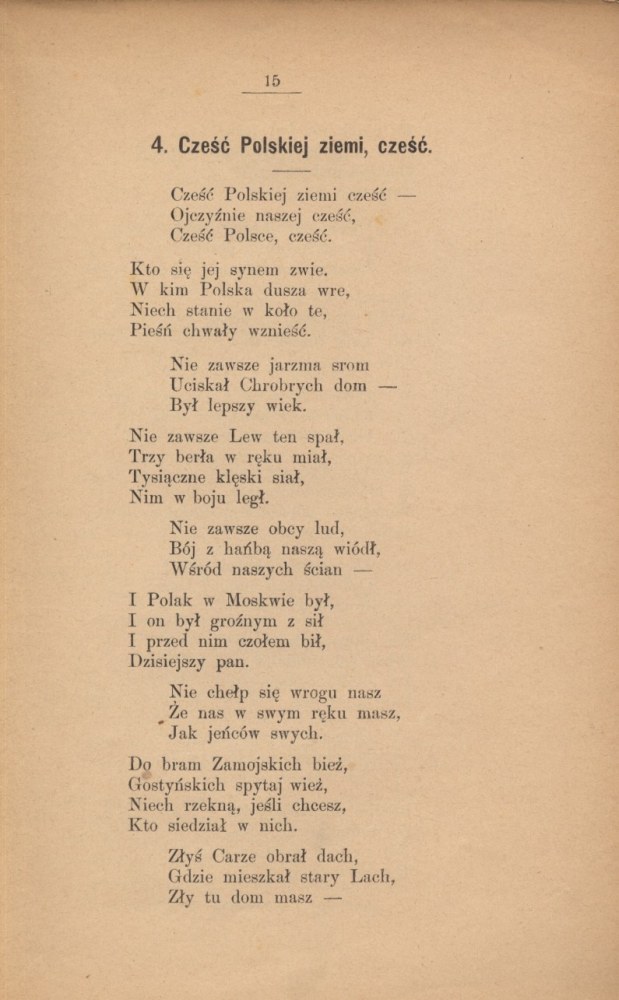 15
4. Cześć Polskiej ziemi, cześć.
Cześć Polskiej ziemi cześć —
Ojczyźnie naszej cześć,
Cześć Polsce, cześć.
Kto się jej synem zwie.
W kim Polska dusza wre,
Niech stanie w koło te,
Pieśń chwały wznieść.
Nie zawsze jarzma srom
Uciskał Chrobrych dom —
Był lepszy wiek.
Nie zawsze Lew ten spał,
Trzy berła w ręku miał,
Tysiączne klęski siał,
Nim w boju legł.
Nie zawsze obcy lud,
Bój z hańbą naszą wiódł,
Wśród naszych ścian —
I Polak w Moskwie był,
I on był groźnym z sił
I przed nim czołem bił,
Dzisiejszy pan.
Nie chełp się wrogu nasz
Że nas w swym ręku masz,
Jak jeńców swych.
Do bram Zamojskich bież,
Gostyńskich spytaj wież,
Niech rzekną, jeśli chcesz,
Kto siedział w nich.
Złyś Carze obrał dach,
Gdzie mieszkał stary Lach,
Zły tu dom masz —